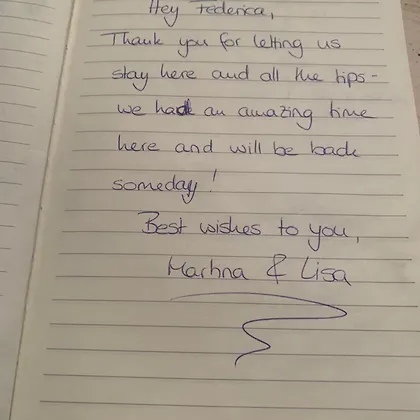 Hey Federica,
Thank you for letting us
stay here and all the tips -
we had an amazing time
here and will be back
someday!
Best wishes to you,
& Lisa